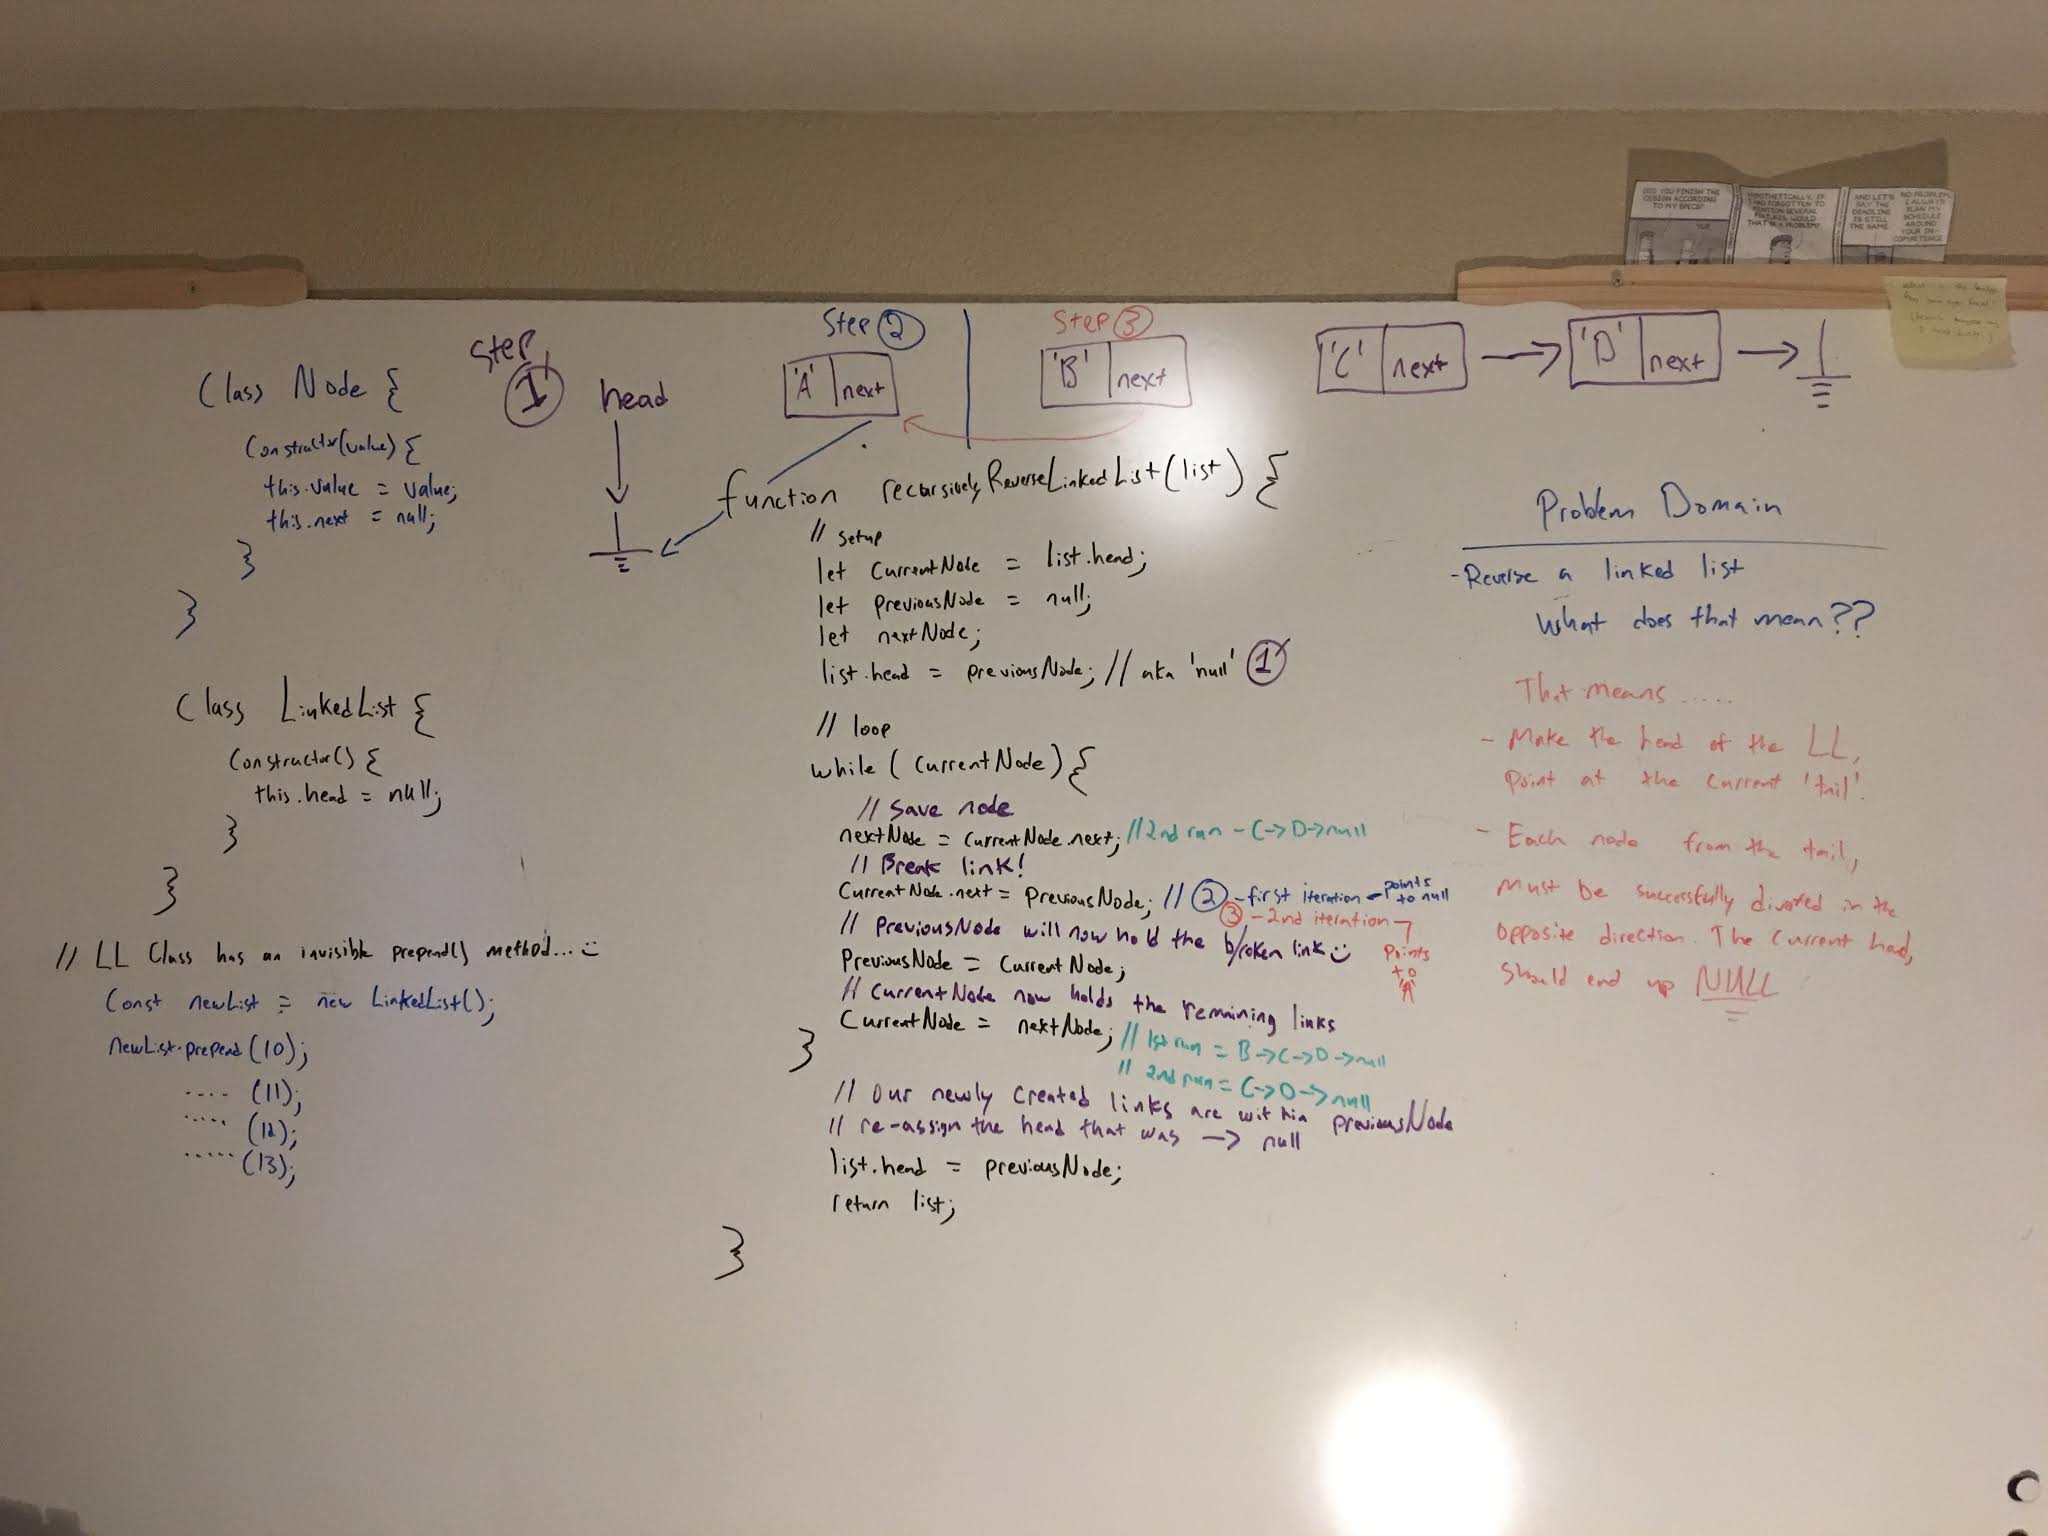 DID YOU FINISH THE
DESIGN ACCORDING
TO MY SPECS?
YUP.
HYPOTHETICALLY, IF
I HAD FORGOTTEN TO
MENTION SEVERAL
FEATURES, WOULD
THAT BE A PROBLEM?
AND LET'S
SAY THE
DEADLINE
IS STILL
THE SAME
NO PROBLEM.
I ALWAYS
PLAN MY
SCHEDULE
AROUND
YOUR IN-
COMPETENCE.
Class Node {
Constructor(value) {
this.value = value;
this.next = null;
}
}
Class LinkedList {
Constructor() {
this.head = null;
}
}
// LL Class has an invisible prepend() method...
Const newList = new LinkedList();
newList.prepend(10);
.... (11);
..... (12);
..... (13);
Step
1
head
Step 2
'A' next
Step 3
'B' next
'C' next
'D' next
function recursivelyReverseLinkedList(list) {
// setup
let currentNode = list.head;
let previousNode = null;
let nextNode;
list.head = previousNode; // aka 'null' 1
// loop
while (currentNode) {
// Save node
nextNode = currentNode.next; //2nd run - C->D->null
// Break link!
CurrentNode.next = previousNode; // 2 -first iteration - points to null
3 -2nd iteration
points
to
'A'
// previousNode will now hold the broken link
previousNode = currentNode;
// currentNode now holds the remaining links
CurrentNode = nextNode; // 1st run = B->C->D->null
// 2nd run = C->D->null
}
// Our newly created links are within previousNode
// re-assign the head that was -> null
list.head = previousNode;
return list;
}
Problem Domain
-Reverse a linked list
What does that mean??
That means .....
- Make the head of the LL,
point at the current 'tail'.
- Each node from the tail,
must be successfully divoted in the
opposite direction. The current head,
should end up NULL